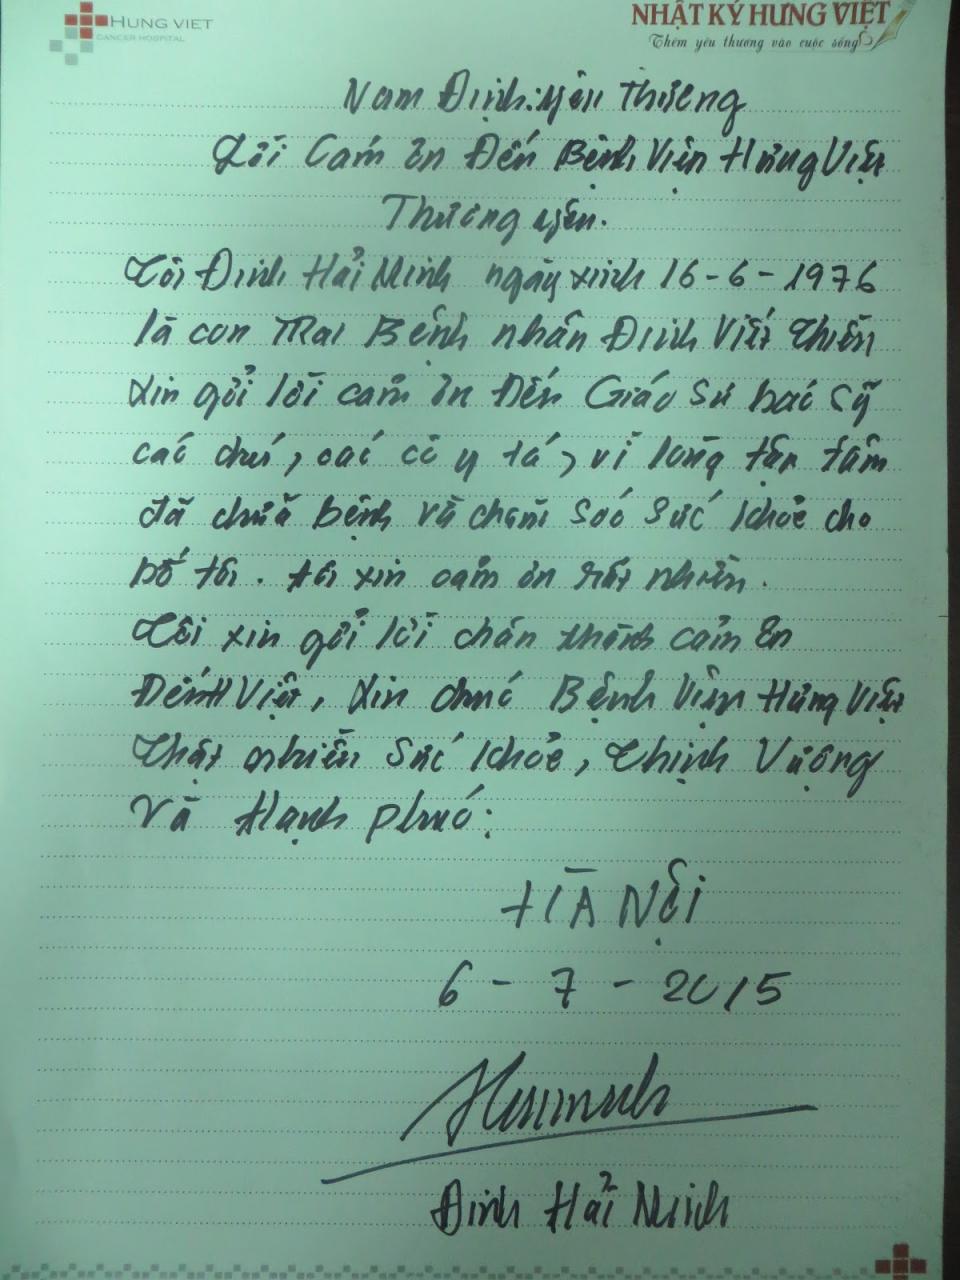 HUNG VIET
CANCER HOSPITAL
NHẬT KÝ HƯNG VIỆT
Thêm yêu thương vào cuộc sống
Nam Định: yêu thương
Lời Cảm ơn Đến Bệnh Viện Hưng Việt
Thương yêu.
Tôi Đinh Hải Ninh ngày xinh 16-6-1976
là con Trai Bệnh nhân Đinh Viết Thiền
xin gửi lời cảm ơn Đến Giáo sư bác sỹ
các chú, các cô y tá, vì lòng tận tâm
đã chữa bệnh và chăm sóc sức khỏe cho
bố tôi. tôi xin cảm ơn rất nhiều.
Tôi xin gửi lời chân thành cảm ơn
Đến H Việt, xin chúc Bệnh Viện Hưng Việt
Thật nhiều sức khỏe, Thịnh Vượng
Và Hạnh phúc:
HÀ Nội
6 - 7 - 2015
Đinh Hải Ninh